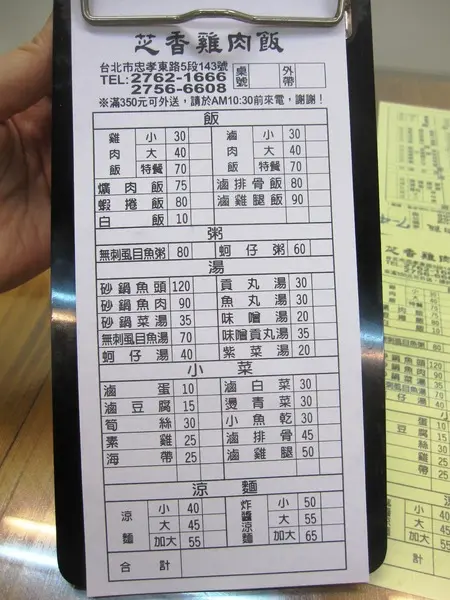 芝香雞肉飯
台北市忠孝東路5段143號
TEL:2762-1666
2756-6608
桌號 外帶
※滿350元可外送，請於AM10:30前來電，謝謝！
飯
雞肉飯 小 30 滷肉飯 小 30
大 40 大 40
特餐 70 特餐 70
爌肉飯 75 滷排骨飯 80
蝦捲飯 80 滷雞腿飯 90
白飯 10
粥
無刺虱目魚粥 80 蚵仔粥 60
湯
砂鍋魚頭 120 貢丸湯 30
砂鍋魚肉 90 魚丸湯 30
砂鍋菜湯 35 味噌湯 20
無刺虱目魚湯 70 味噌貢丸湯 35
蚵仔湯 40 紫菜湯 20
小菜
滷蛋 10 滷白菜 30
滷豆腐 15 燙青菜 30
筍絲 30 小魚乾 30
素雞 25 滷排骨 45
海帶 25 滷雞腿 50
涼麵
涼麵 小 40 炸醬涼麵 小 50
大 45 大 55
加大 55 加大 65
合計